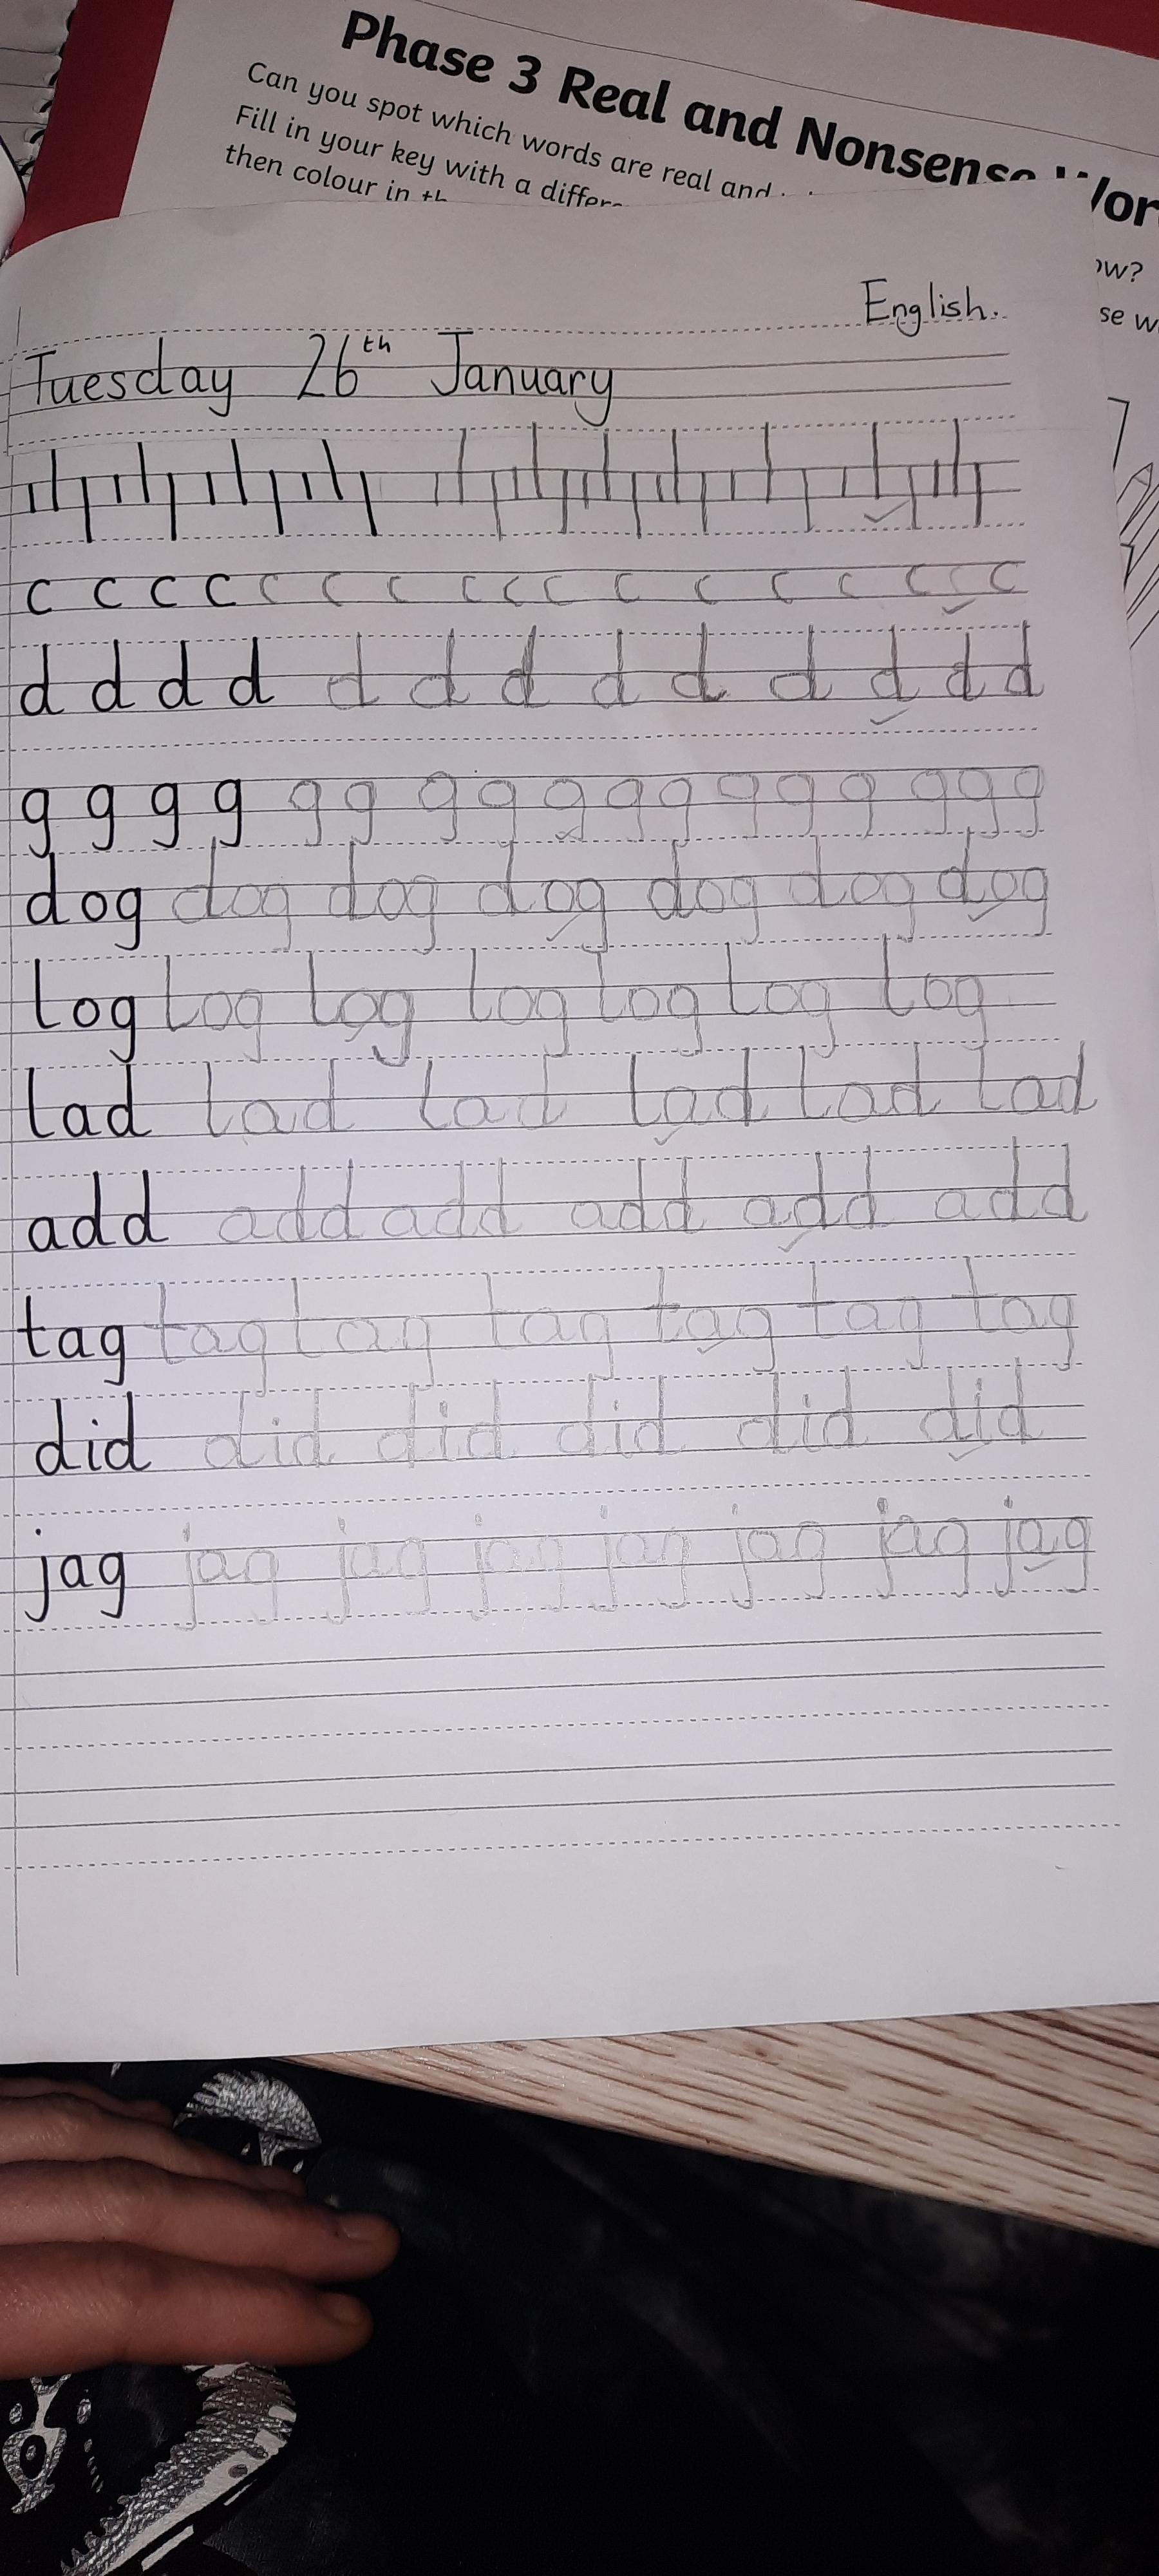 Phase 3 Real and Nonsense Wor
Can you spot which words are real and
Fill in your key with a differ
then colour in th
ow?
se w
English.
Tuesday 26th January
c c c c c c c c c c c c c c c c c
d d d d d d d d d d d d d
g g g g g g g g g g g g g g g g g
dog dog dog dog dog dog dog
log log log log log log log
lad lad lad lad lad lad
add add add add add add
tag tag tag tag tag tag tag
did did did did did did
jag jag jag jag jag jag jag jag